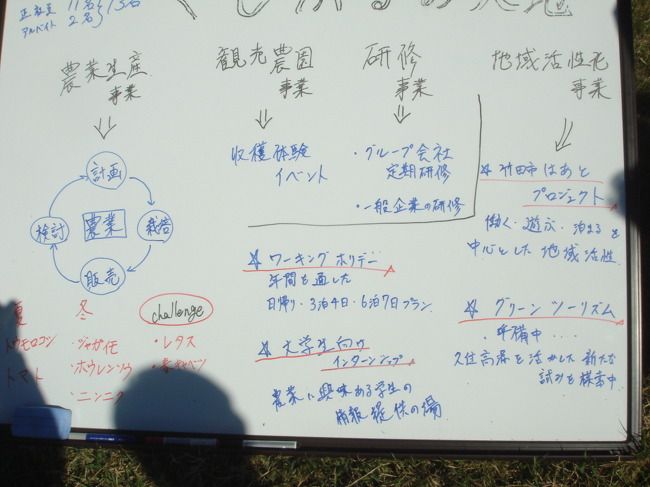 正社員 11名
アルバイト 2名 } 13名
農業生産
事業
計画
栽培
販売
検討
農業
夏
トウモロコシ
トマト
冬
・ジャガイモ
・ホウレンソウ
・ニンニク
challenge
・レタス
・芽キャベツ
観光農園
事業
収穫体験
イベント
研修
事業
・グループ会社
定期研修
・一般企業の研修
☆ ワーキングホリデー
年間を通した
日帰り・3泊4日・6泊7日プラン
☆ 大学生向け
インターンシップ
農業に興味ある学生の
情報提供の場
地域活性化
事業
☆ 竹田市はあと
プロジェクト
働く・遊ぶ・泊まるを
中心とした地域活性
☆ グリーンツーリズム
・準備中・・・・
久住高原を活かした新たな
試みを模索中